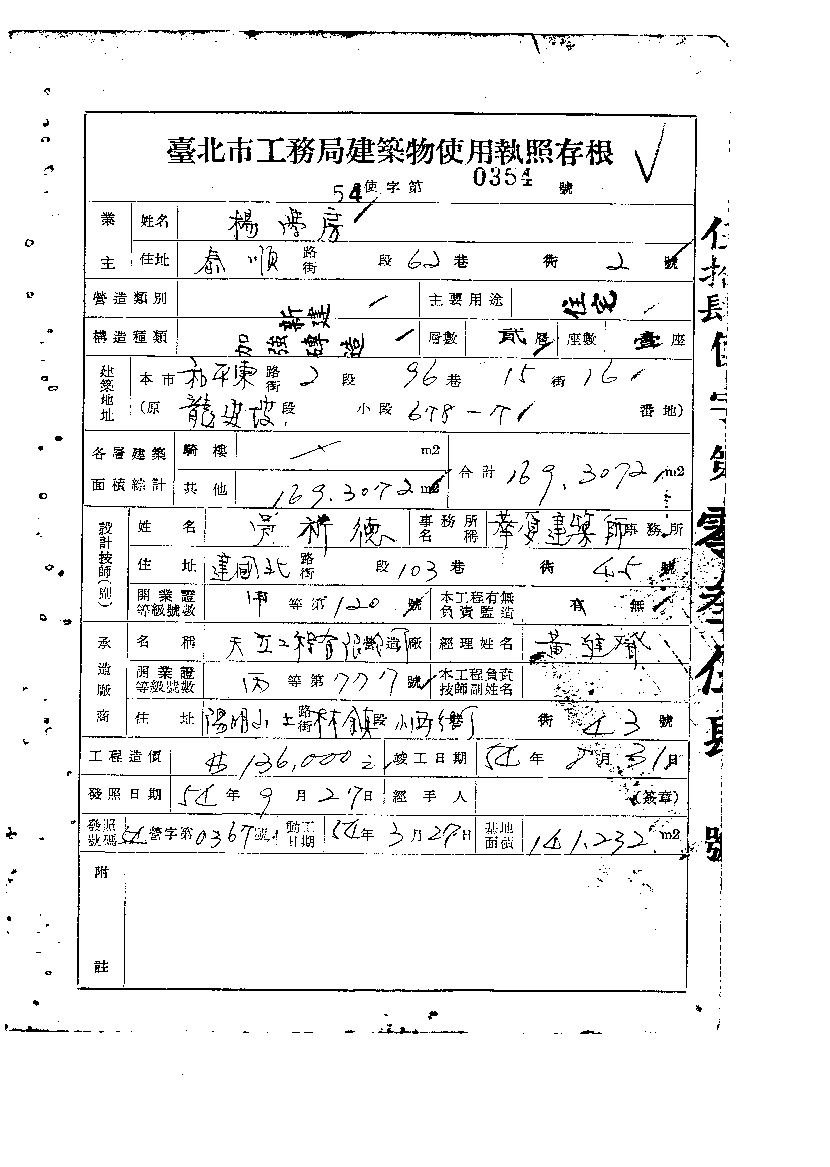 臺北市工務局建築物使用執照存根
54使字第 0354 號
業主 姓名 楊學房
住址 泰順 路街 段 62巷 衖 2 號
營造類別 新建 主要用途 住宅
構造種類 加強磚造 層數 貳層 座數 壹座
建築地址 本市 和平東 路街 2 段 96巷 15衖 16
(原 龍安坡 段 小段 678-71 番地)
各層建築面積綜計 騎樓 m2 合計 169.3072 m2
其他 169.3072 m2
設計技師(別) 姓名 吳祈德 事務所名稱 華夏建築師事務所
住址 建國北 路街 段 103巷 衖 45 號
開業證等級號數 甲等第 120 號 本工程有無負責監造 有 無
承造廠商 名稱 天立工程有限 營造廠 經理姓名 黃
開業證等級號數 丙等第 777 號 本工程負責技師副姓名
住址 陽明山士林鎮 路街 段 巷 衖 43 號
工程造價 $136,000元 竣工日期 54年8月31日
發照日期 54年9月27日 經手人 (簽章)
發照號碼 54營字第0367號 動工日期 54年3月27日 基地面積 141.232 m2
附註
伍拾肆使字第零叁伍肆號